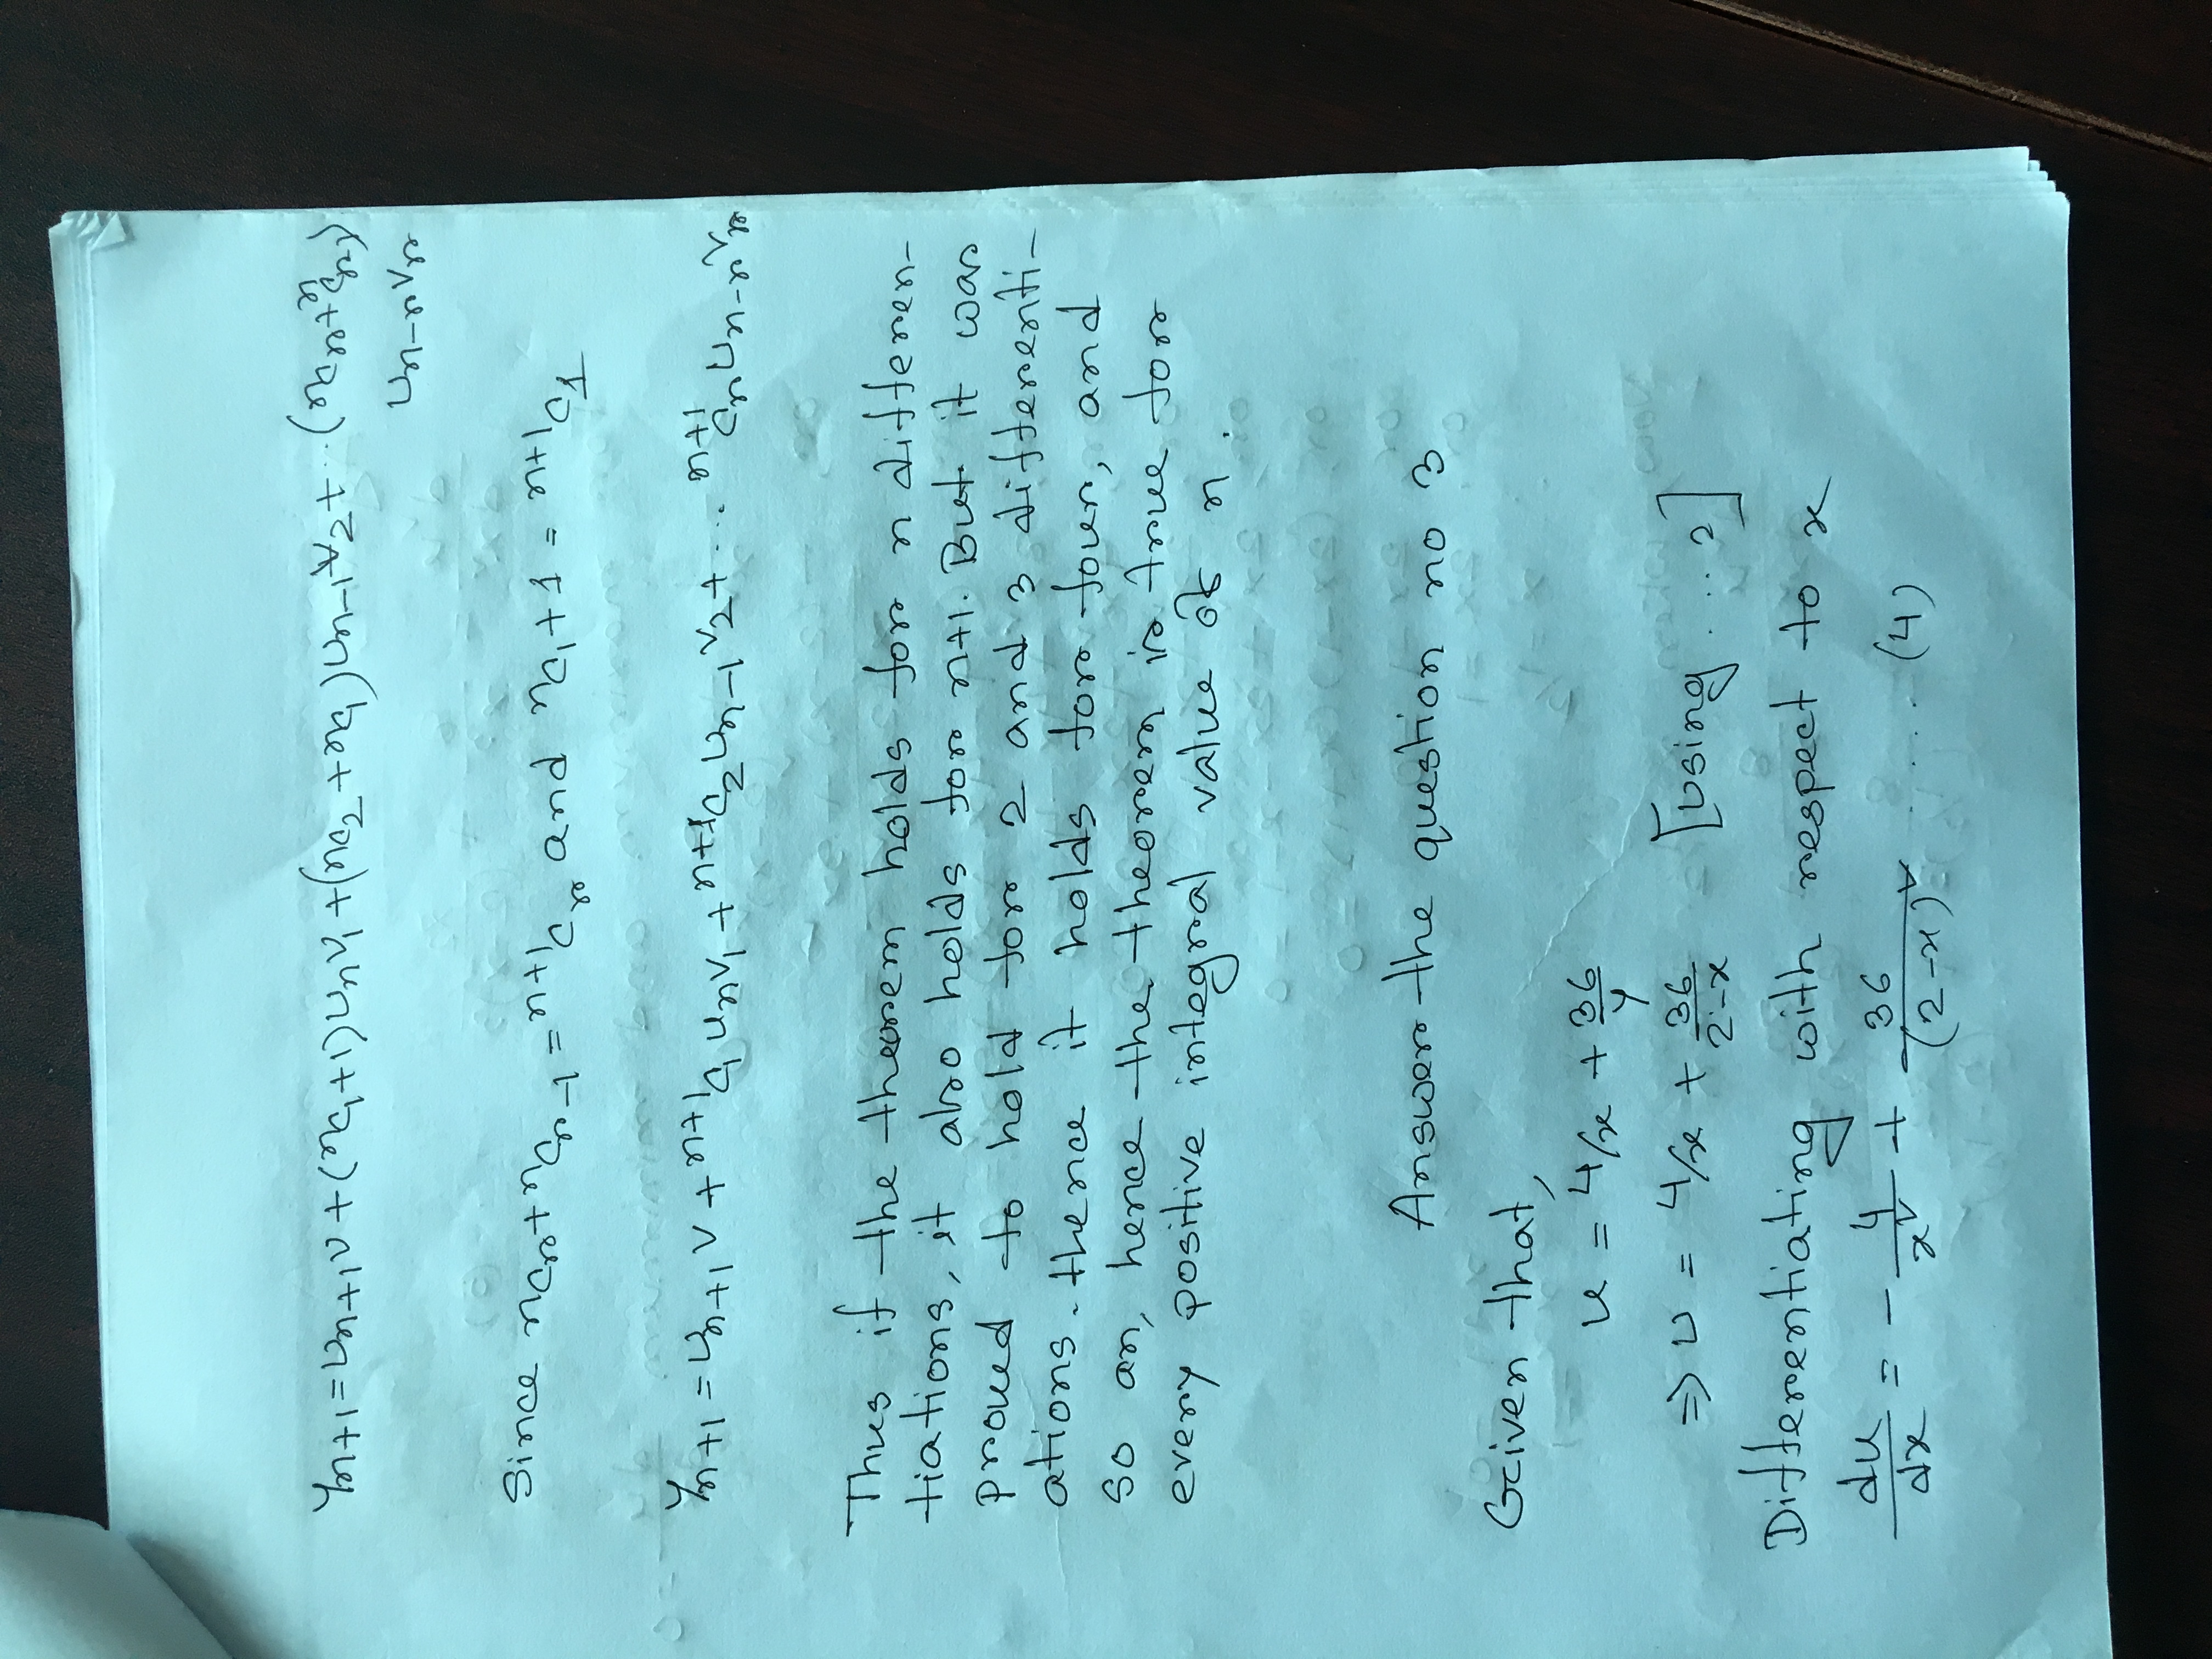 Yn+1 = Un+1 V + (nc1 + 1) Un V1 + (nc2 + nc1) Un-1 V2 + ... (ncr + ncr-1)
Un-r Vr
Since ncr + ncr-1 = n+1cr and nc1 + 1 = n+1c1
Yn+1 = Un+1 V + n+1c1 Un V1 + n+1c2 Un-1 V2 + ... n+1cr Un-r Vr
Thus if the theorem holds for n differen-
tiations, it also holds for n+1. But it was
proved to hold for 2 and 3 differenti-
ations. thence it holds for four, and
so an, hence the theorem is true for
every positive integral value of n.
Answer the question no 3
Given that,
u = 4/x + 36/y
⇒ U = 4/x + 36/2-x [Using ... 2]
Differentiating with respect to x
du/dx = - 4/x² + 36/(2-x)² ..... (4)